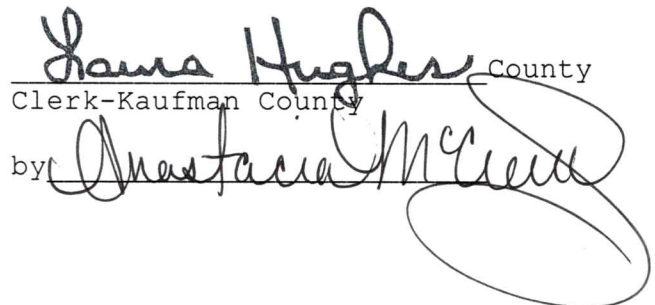 Laura Hughes County
Clerk-Kaufman County
by Anastacia